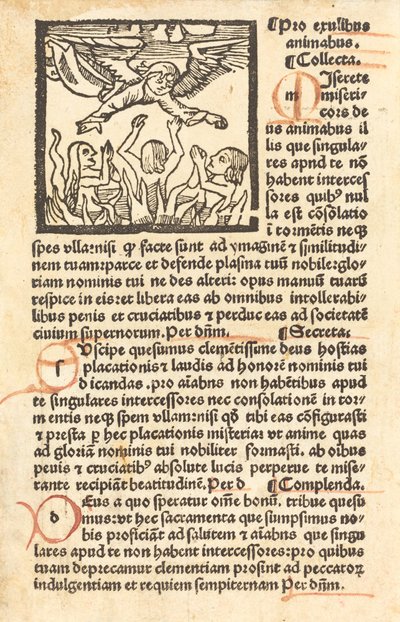 ¶Pro exulibus
animabus.
¶Collecta.
Iserete
m miseri⸗
cors de
us animabus il
lis que singula⸗
res apud te nō
habent interces
sores quibꝰ nul
la est cōsolatio
ī tormētis neqꝫ
spes vlla: nisi ꝙ facte sunt ad ymaginē & similitudi⸗
nem tuam: parce et defende plasma tuū nobile: glo⸗
riam nominis tui ne des alteri: opus manuū tuarū
respice in eis: et libera eas ab omnibus intollerabi⸗
libus penis et cruciatibus & perduc eas ad societatē
ciuium supernorum. Per dn̄m. ¶Secreta.
s Uscipe quesumus clemētissime deus hostias
placationis & laudis ad honorē nominis tui
dicandas. pro aīabus nō habētibus apud
te singulares intercessores nec consolationē in tor⸗
mentis neqꝫ spem vllam: nisi qꝫ tibi eas cōfigurasti
& presta ꝑ hec placationis misteria: vt anime quas
ad gloriam nominis tui nobiliter formasti. ab oībus
penis & cruciatibꝰ absolute lucis perpetue te mise⸗
rante recipiāt beatitudinē. Per d ¶Complenda.
d Eus a quo speratur om̄e bonū. tribue quesu
mus: vt hec sacramenta que sumpsimus no⸗
bis proficiāt ad salutem & aīabus que singu
lares apud te non habent intercessores: pro quibus
tuam deprecamur clementiam prosint ad peccatoꝝ
indulgentiam et requiem sempiternam Per dn̄m.